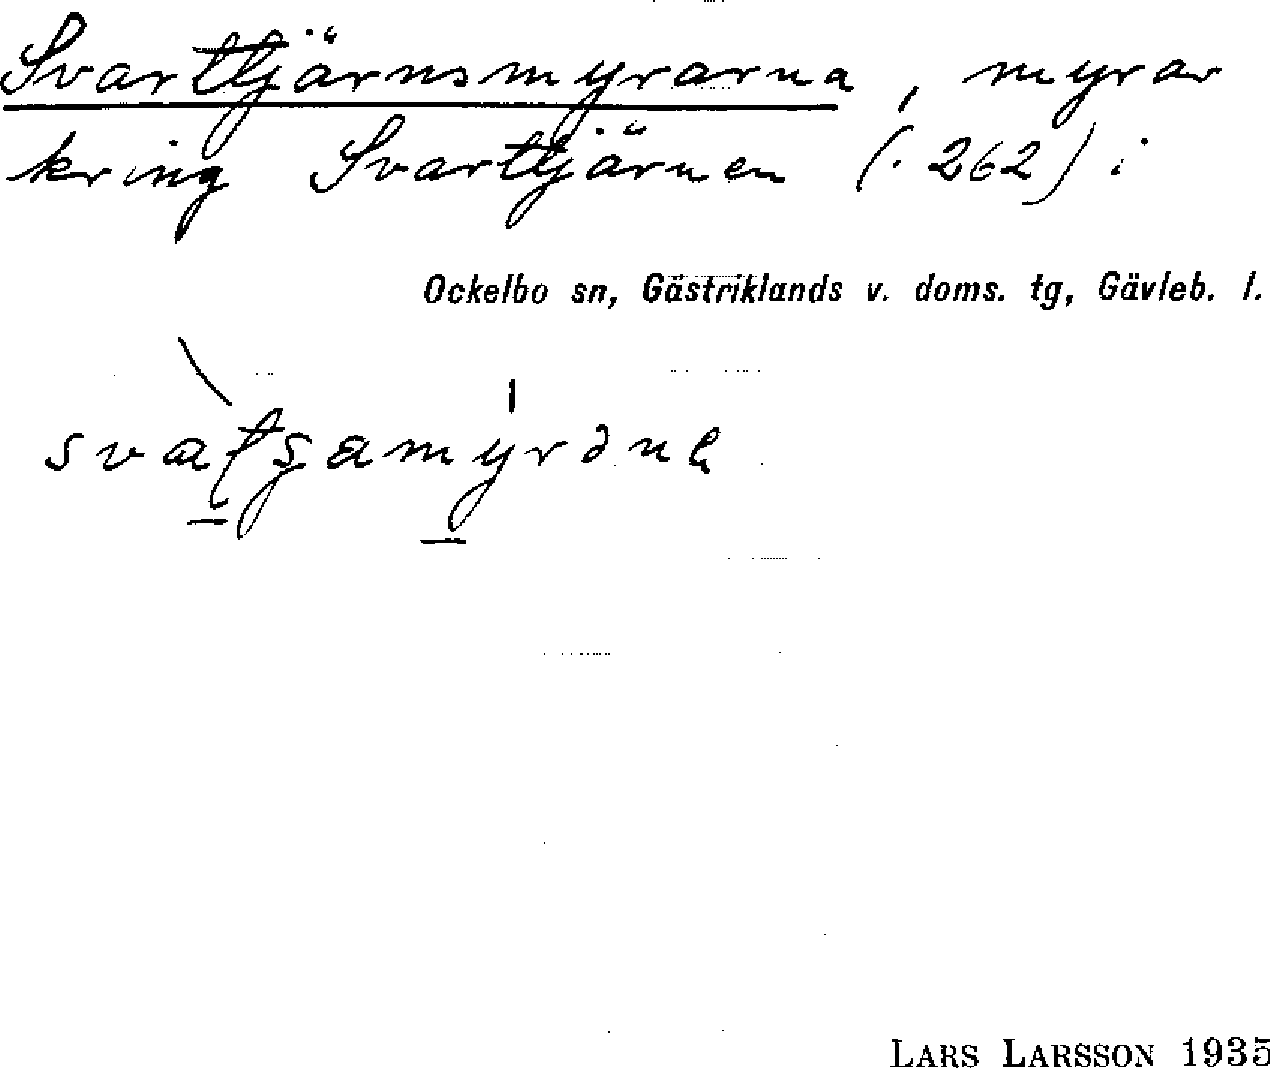 Svarttjärnsmyrarna, myrar
kring Svarttjärnen (. 262) i
Ockelbo sn, Gästriklands v. doms. tg, Gävleb. l.
LARS LARSSON 1935